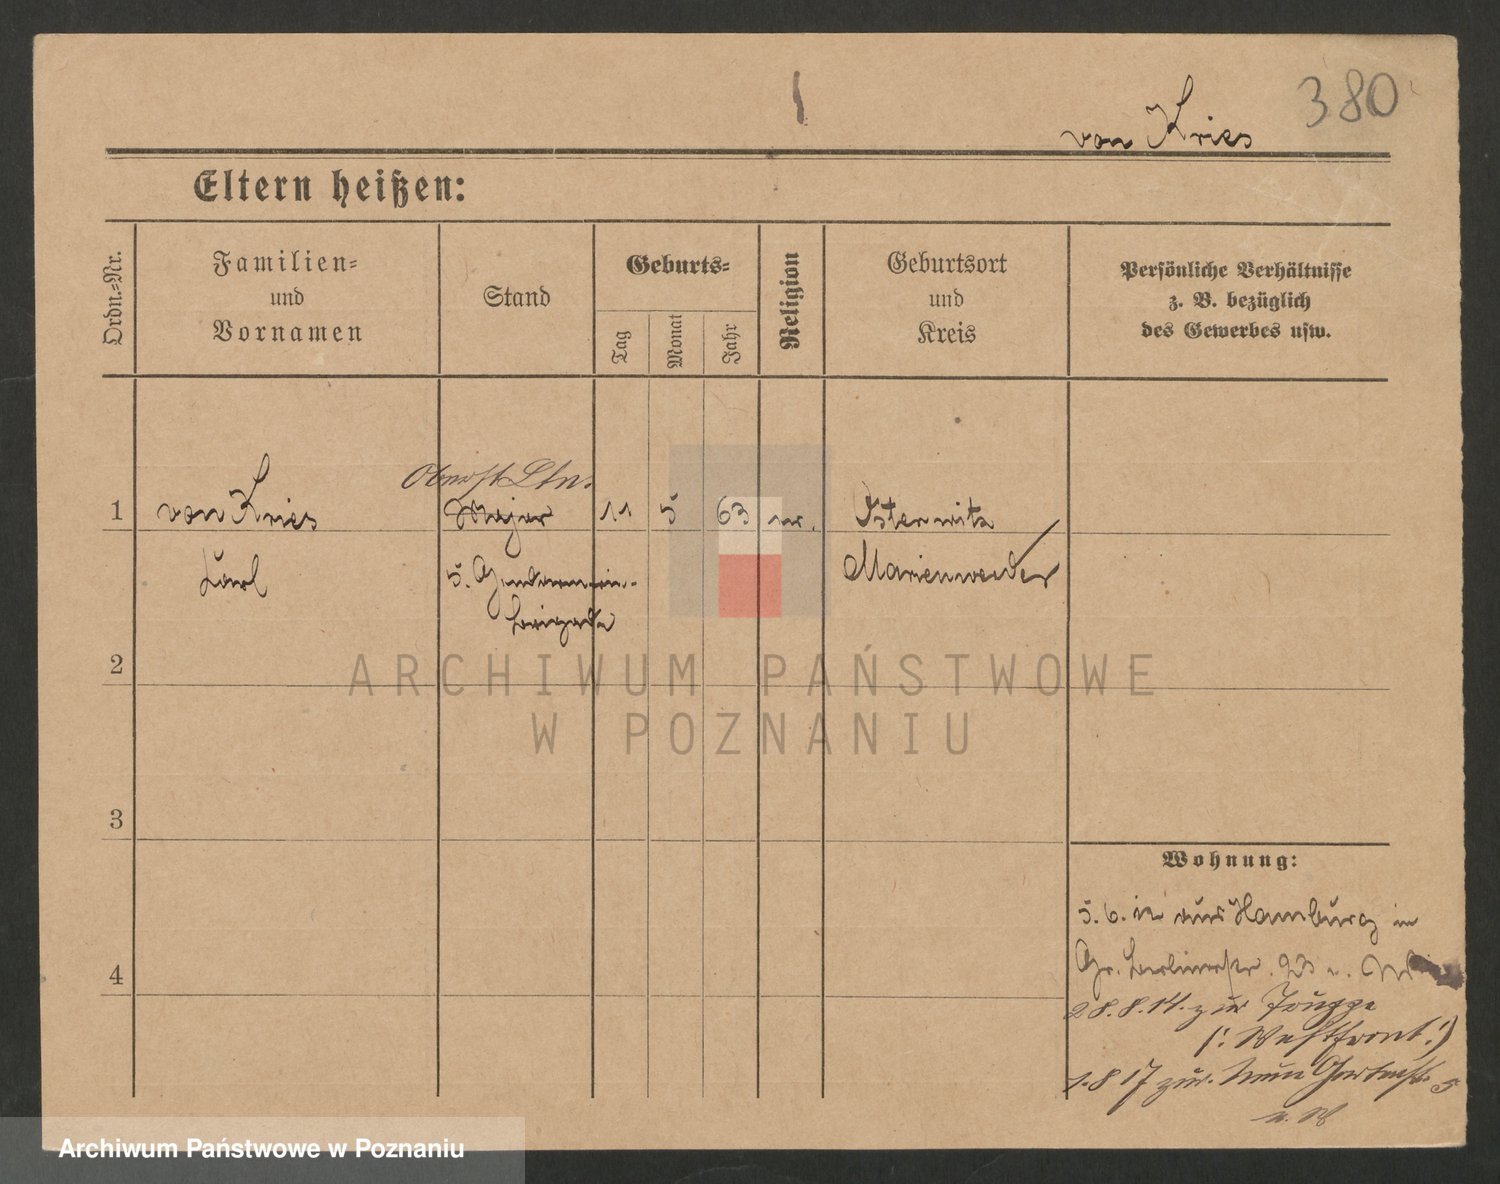 380
von Kries
Eltern heißen:
Ordn.-Nr.
Familien-
und
Vornamen
Stand
Geburts-
Tag
Monat
Jahr
Religion
Geburtsort
und
Kreis
Persönliche Verhältnisse
z. B. bezüglich
des Gewerbes usw.
Oberst Ltn.
1 von Kries Major 11 5 63 Osterwitz
Karl 5. Gendarmerie- Marienwerder
brigade
2
3
4
Wohnung:
5. 6. 12 aus Hamburg in
Gr. Berlinerstr. 93
28.8.14. zur Truppe
(: Westfront :)
1.8 17 zur. Neue Gartenstr. 5
ARCHIWUM PAŃSTWOWE
W POZNANIU
Archiwum Państwowe w Poznaniu